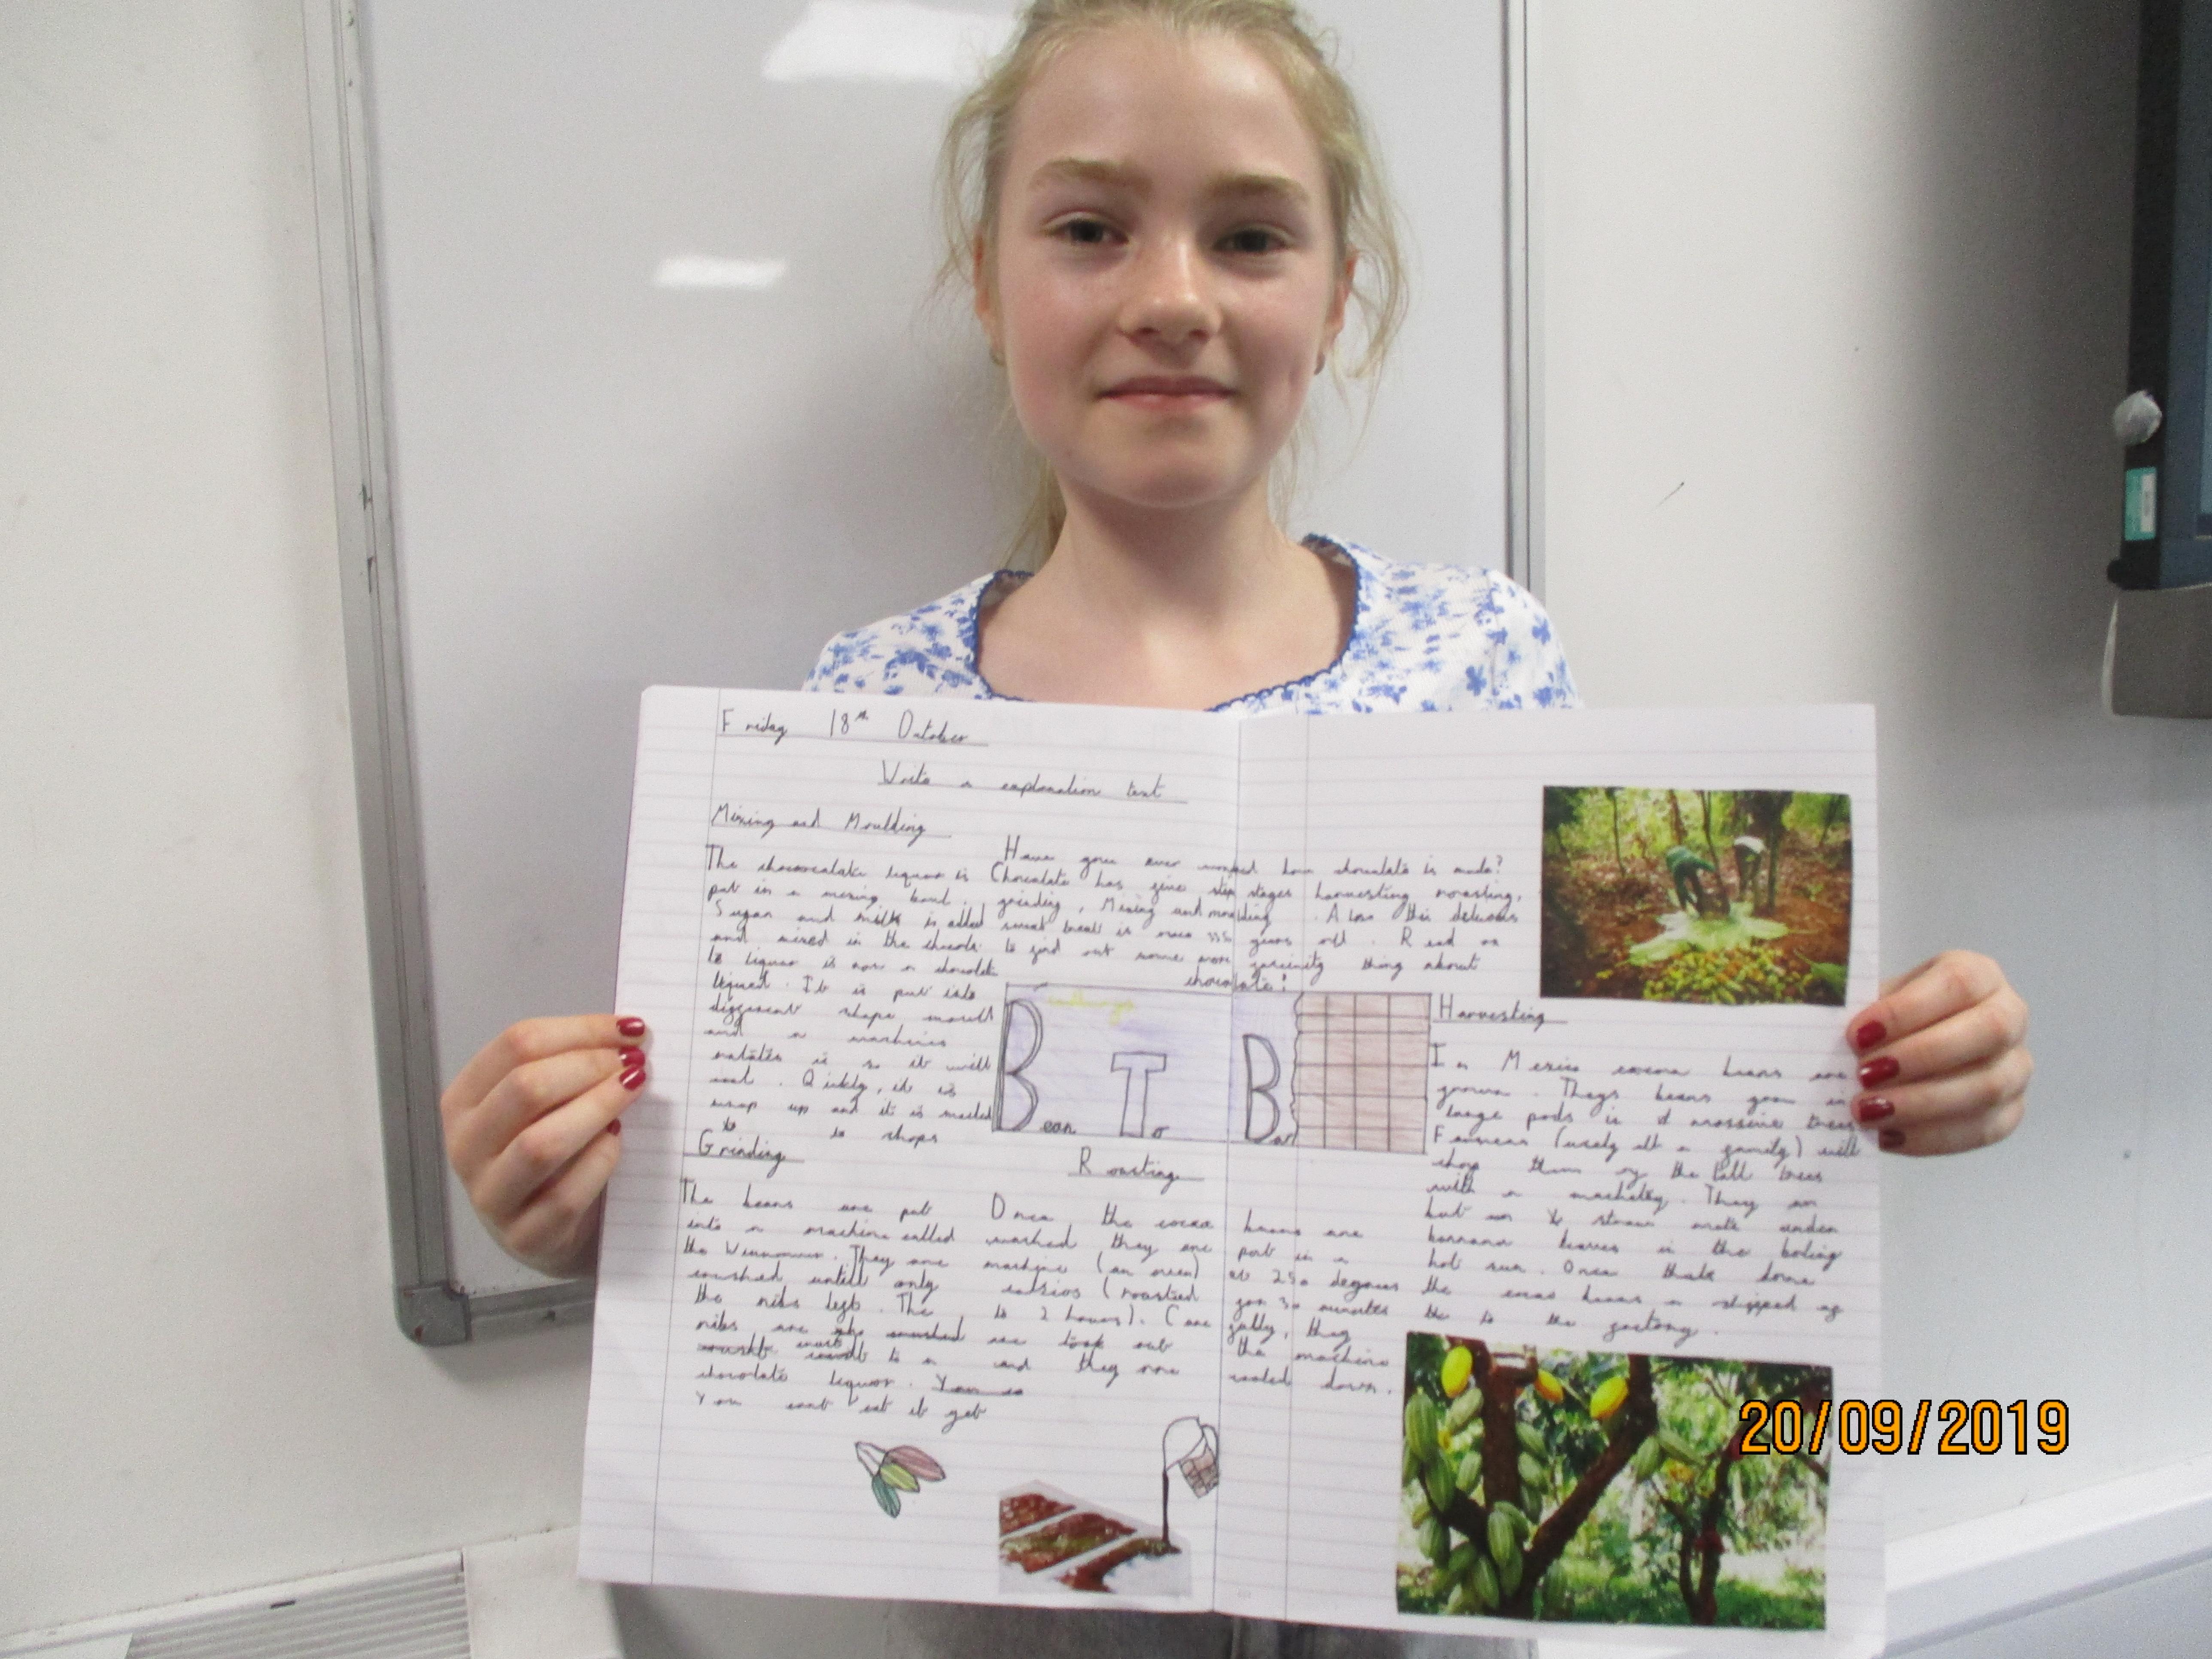 Friday 18th October
Write a explanation text
Have you ever how chocolate is made?
Chocolate has five step stages harvesting roasting,
grinding, Mixing and moulding. Also this delicious
sweat treat is over years old. Read on
to find out some more thing about
chocolate!
Mixing and Moulding
The liquor is
put in a mixing bowl.
Sugar and milk is added
and mixed in the
liquor is now a chocolate
It is put into
shape
and a machine
it so it will
it is
wrap up and it is mailed
to to shops
Bean To Bar
Harvesting
In Mexico cocoa beans are
grown. Theys beans grow in
large pods is d massive trees
Farmers (usely all a family) will
chop them of the tall trees
with a They are
under
leaves in the boling
hot sun. Once thats done
the cocoa beans a shipped of
the to the factory.
Grinding
The beans are put
into a machine called
the They are
crushed untill only
the nibs left. The
nibs are crushed
to a
chocolate liquor. You
You cant eat it yet
Roasting
Once the cocoa beans are
washed they are put in a
machine (an oven) at 250 degrees
(roasted for 30 minutes
to 2 hours). Carefully, they
are took out the machine
and they are cooled down.
20/09/2019